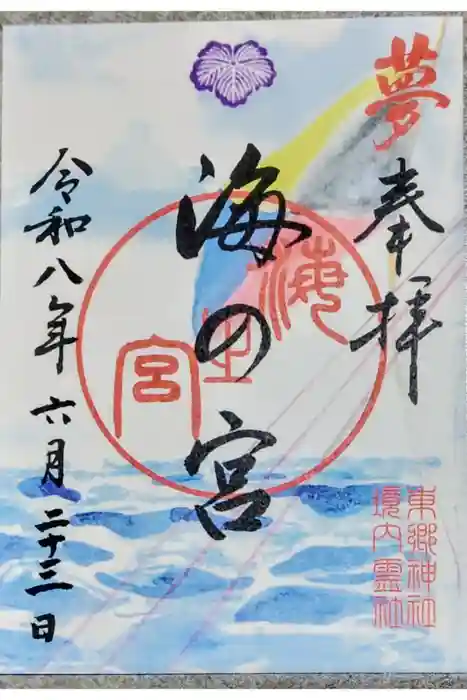 夢
奉拝
東郷神社
境内霊社
海の宮
海
之
宮
令和八年 六月 二十三日